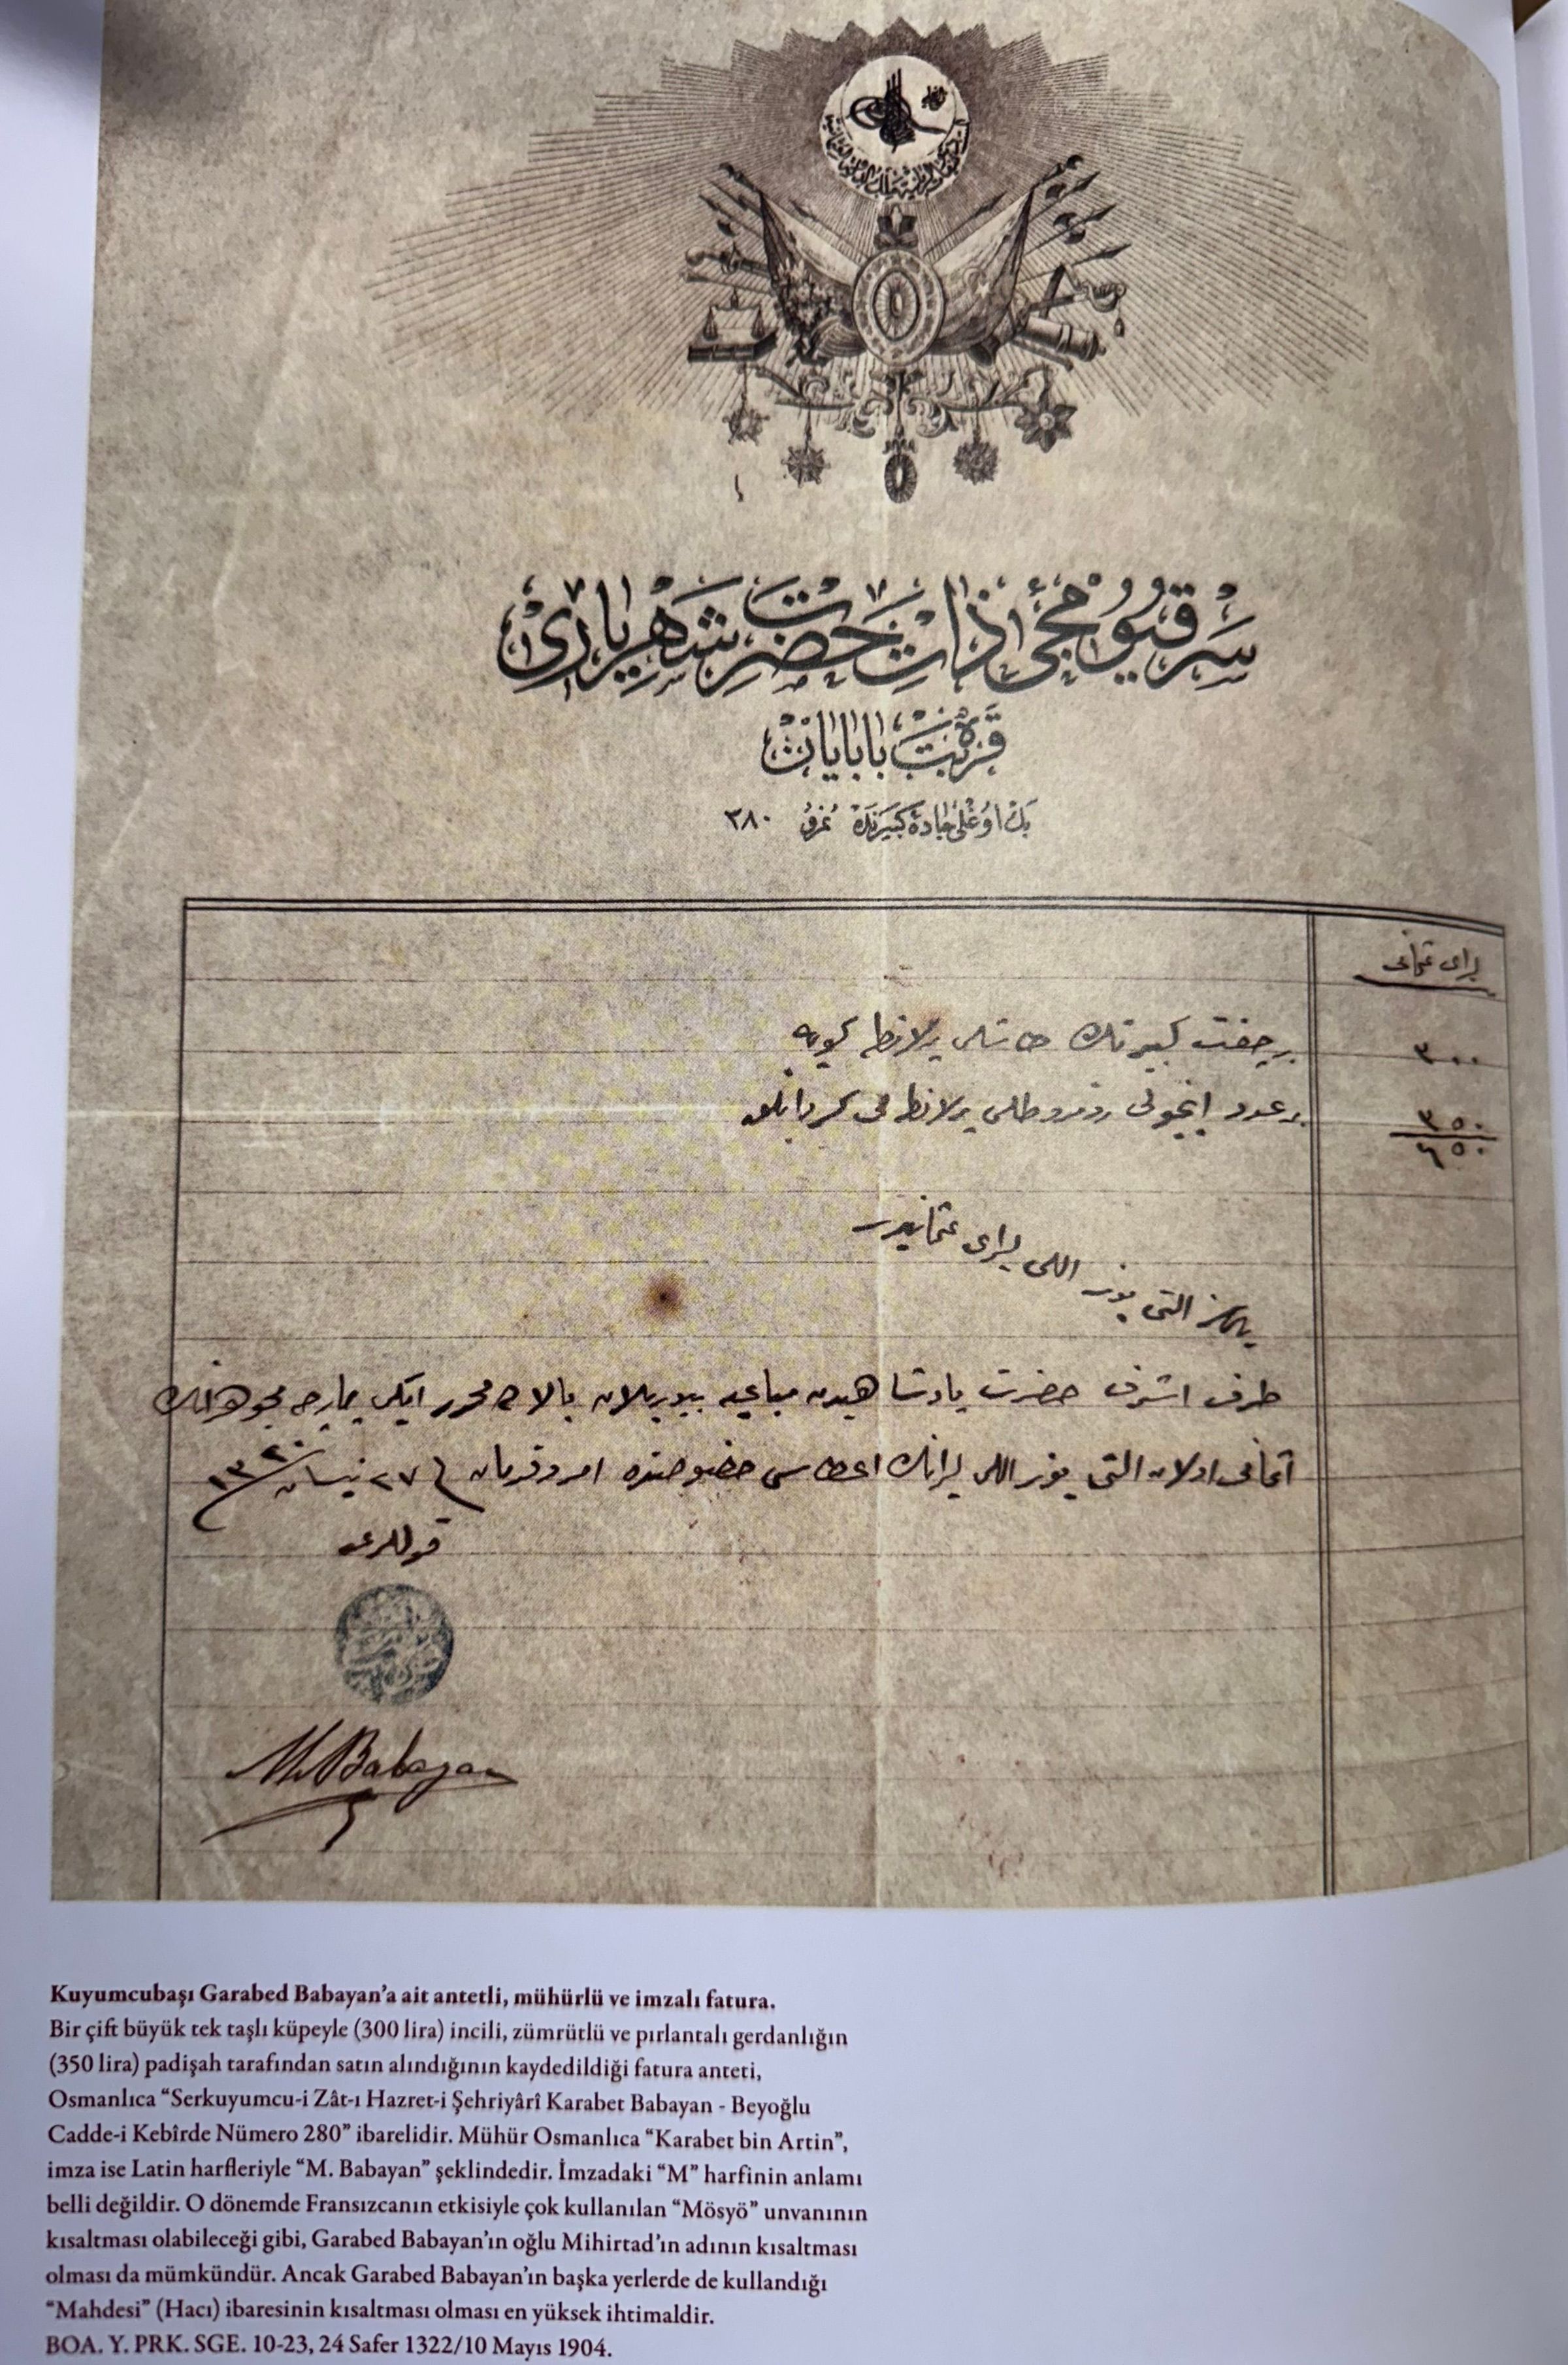 سرقیومجیٔ ذات حضرت شهریاری
قره‌بت بابایان
بك اوغلی جادهٔ كبیرنده نمرو ٢٨٠
لیرای عثمانی
برجفت كبیر تك طاشلی پرلانطه كوپه ٣٠٠
بر عدد اینجولی زمردلی پرلانطه لی كردانلق ٣٥٠
٦٥٠
یالكز التی یوز اللی لیرای عثمانیدر
طرف اشرف حضرت پادشاهیدن مبایعه بیوریلان بالاده محرر ایكی پارچه مجوهراتك
اثمانی اولان التی یوز اللی لیرانك اعطاسی خصوصنده امر و فرمان ٢٧ نیسان ١٣٢٠
قوللری
M. Babayan
Kuyumcubaşı Garabed Babayan’a ait antetli, mühürlü ve imzalı fatura.
Bir çift büyük tek taşlı küpeyle (300 lira) incili, zümrütlü ve pırlantalı gerdanlığın
(350 lira) padişah tarafından satın alındığının kaydedildiği fatura anteti,
Osmanlıca “Serkuyumcu-i Zât-ı Hazret-i Şehriyârî Karabet Babayan - Beyoğlu
Cadde-i Kebîrde Nümero 280” ibarelidir. Mühür Osmanlıca “Karabet bin Artin”,
imza ise Latin harfleriyle “M. Babayan” şeklindedir. İmzadaki “M” harfinin anlamı
belli değildir. O dönemde Fransızcanın etkisiyle çok kullanılan “Mösyö” unvanının
kısaltması olabileceği gibi, Garabed Babayan’ın oğlu Mihirtad’ın adının kısaltması
olması da mümkündür. Ancak Garabed Babayan’ın başka yerlerde de kullandığı
“Mahdesi” (Hacı) ibaresinin kısaltması olması en yüksek ihtimaldir.
BOA. Y. PRK. SGE. 10-23, 24 Safer 1322/10 Mayıs 1904.